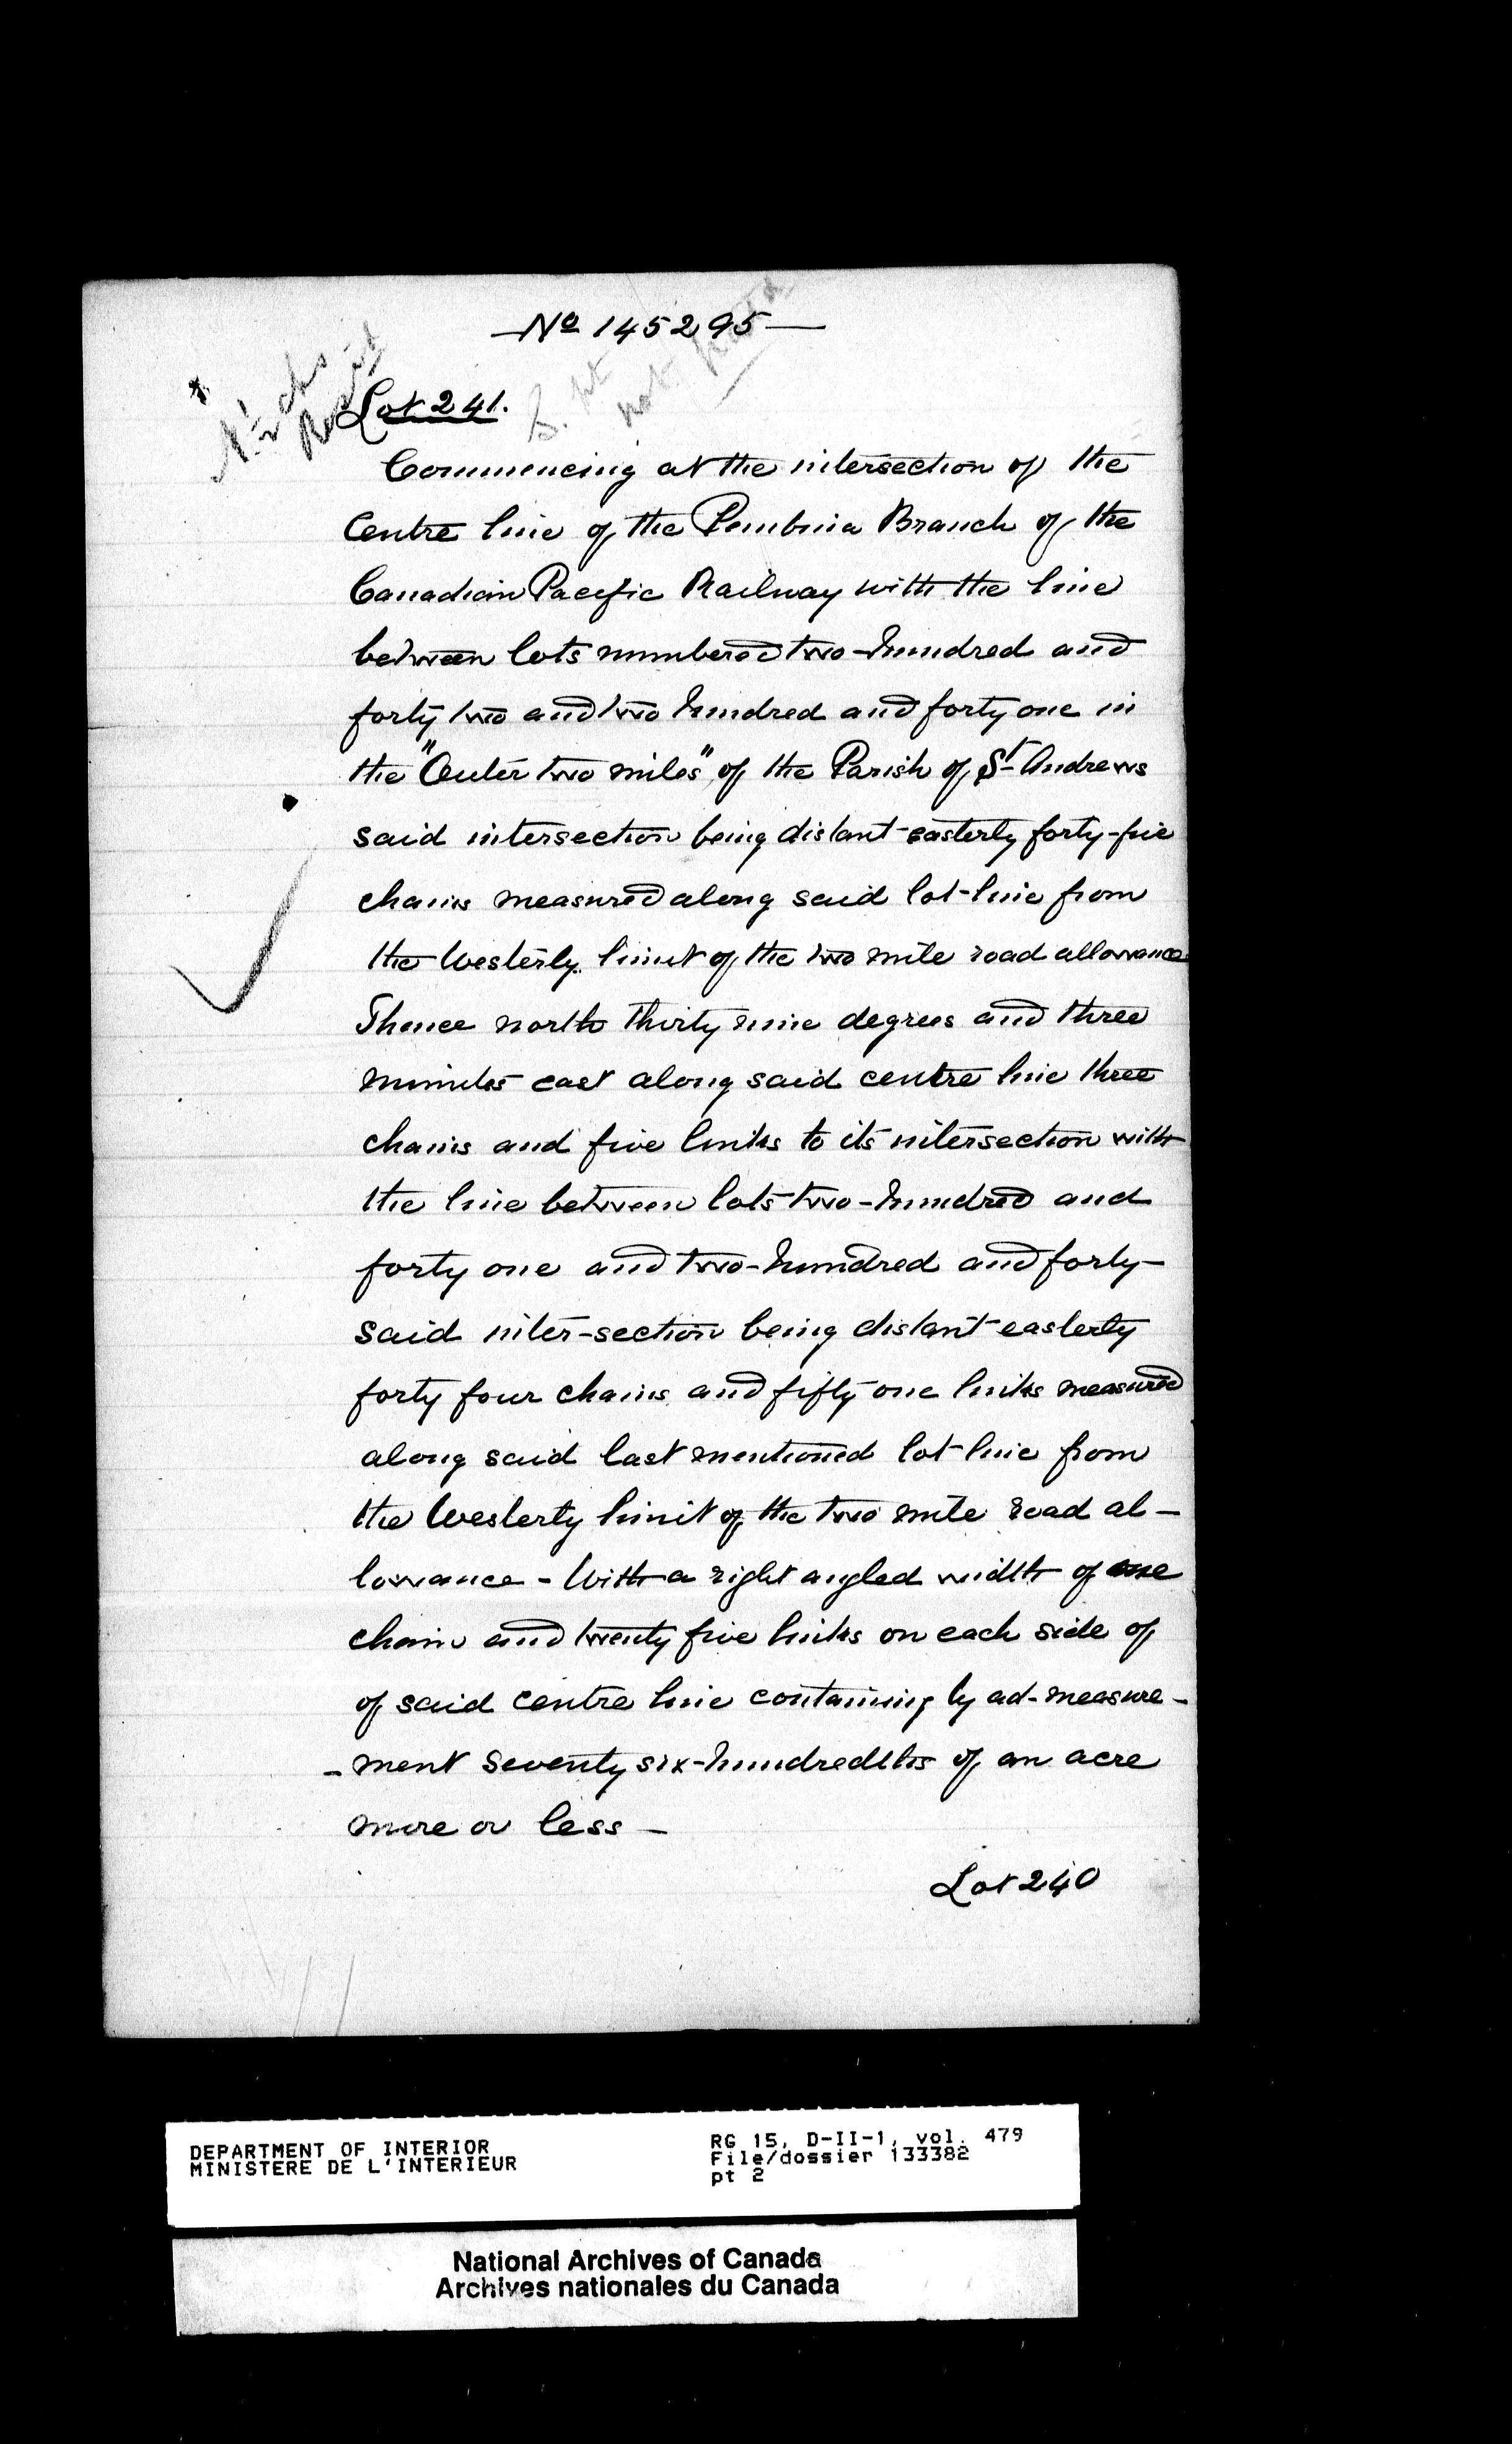 No 145295
Lot 241.
N ½ chs
S. pt
not
Commencing at the intersection of the
Centre line of the Pembina Branch of the
Canadian Pacific Railway with the line
between lots numbered two-hundred and
forty two and two hundred and forty one in
the "Outer two miles" of the Parish of St Andrews
said intersection being distant easterly forty-five
chains measured along said lot-line from
the Westerly limit of the two mile road allowance
Thence north thirty nine degrees and three
minutes east along said centre line three
chains and five links to its intersection with
the line between lots two-hundred and
forty one and two-hundred and forty-
said inter-section being distant easterly
forty four chains and fifty one links measured
along said last mentioned lot-line from
the Westerly limit of the two mile road al-
lowance - With a right angled width of one
chain and twenty five links on each side of
of said centre line containing by ad-measure-
-ment seventy six-hundredths of an acre
more or less -
Lot 240
DEPARTMENT OF INTERIOR
MINISTERE DE L'INTERIEUR
RG 15, D-II-1, vol. 479
File/dossier 133382
pt 2
National Archives of Canada
Archives nationales du Canada